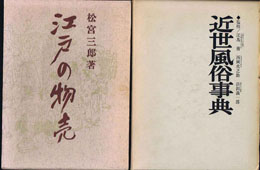 松宮三郎著
江戸の物売
近世風俗事典